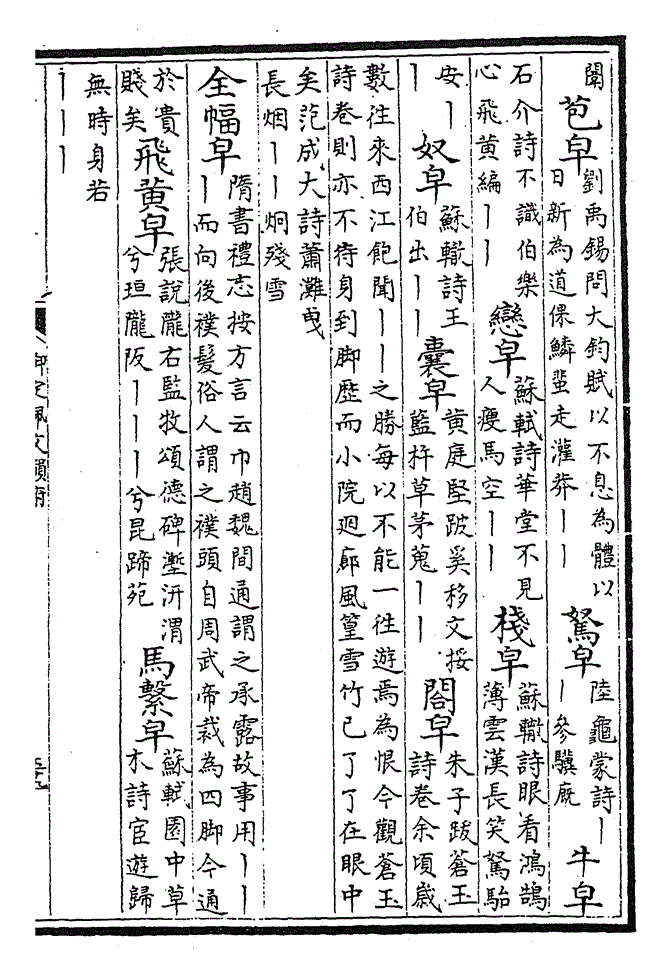 聞
苞皁
劉禹錫問大鈞賦以不息為體以
日新為道倮鱗蜚走灌莽丨丨
駑皁
陸龜蒙詩丨
丨參驥廐
牛皁
石介詩不識伯樂
心飛黃編丨丨
戀皁
蘇軾詩華堂不見
人瘦馬空丨丨
棧皁
蘇轍詩眼看鴻鵠
薄雲漢長笑駑駘
安丨
丨
奴皁
蘇轍詩王
伯出丨丨
囊皁
黃庭堅跛奚移文挼
藍杵草茅蒐丨丨
閤皁
朱子跋蒼玉
詩卷余頃歲
數往來西江飽聞丨丨之勝每以不能一往遊焉為恨今觀蒼玉
詩卷則亦不待身到脚歷而小院迴廊風篁雪竹已了了在眼中
矣范成大詩蕭灘曳
長烟丨丨炯殘雪
全幅皁
隋書禮志按方言云巾趙魏間通謂之承露故事用丨丨
丨而向後襆髮俗人謂之襆頭自周武帝裁為四脚今通
於貴
賤矣
飛黃皁
張說隴右監牧頌德碑壍汧渭
兮垣隴阪丨丨丨兮昆蹄苑
馬繫皁
蘇軾園中草
木詩宦遊歸
無時身若
丨丨丨
御定佩文韻府